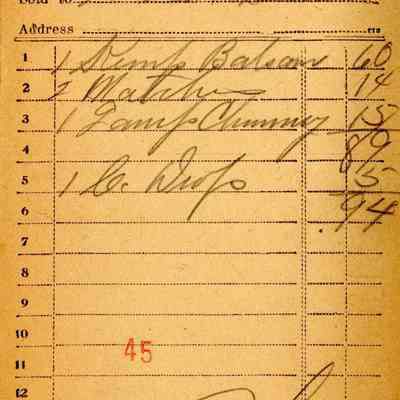 Sold to
Address
1 1 Kemps Balsam 60
2 2 Matches 14
3 1 Lamp Chimney 15
4 89
5 1 C. Drops 5
6 .94
7
8
9
10
11
12
45